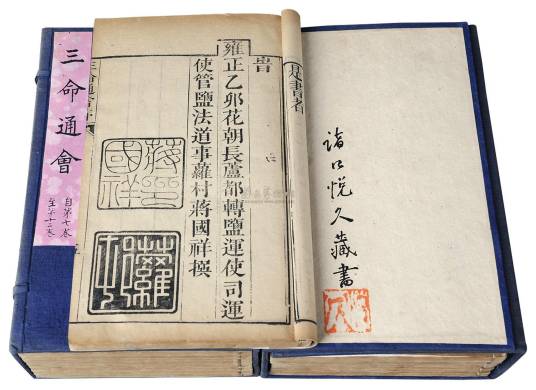 三命通會
自第七卷
至第十二卷
是書者
昔
雍正乙卯花朝長蘆都轉鹽運使司運
使管鹽法道事蘿村蔣國祥撰
國祥
蘿村
諸口悅久藏書